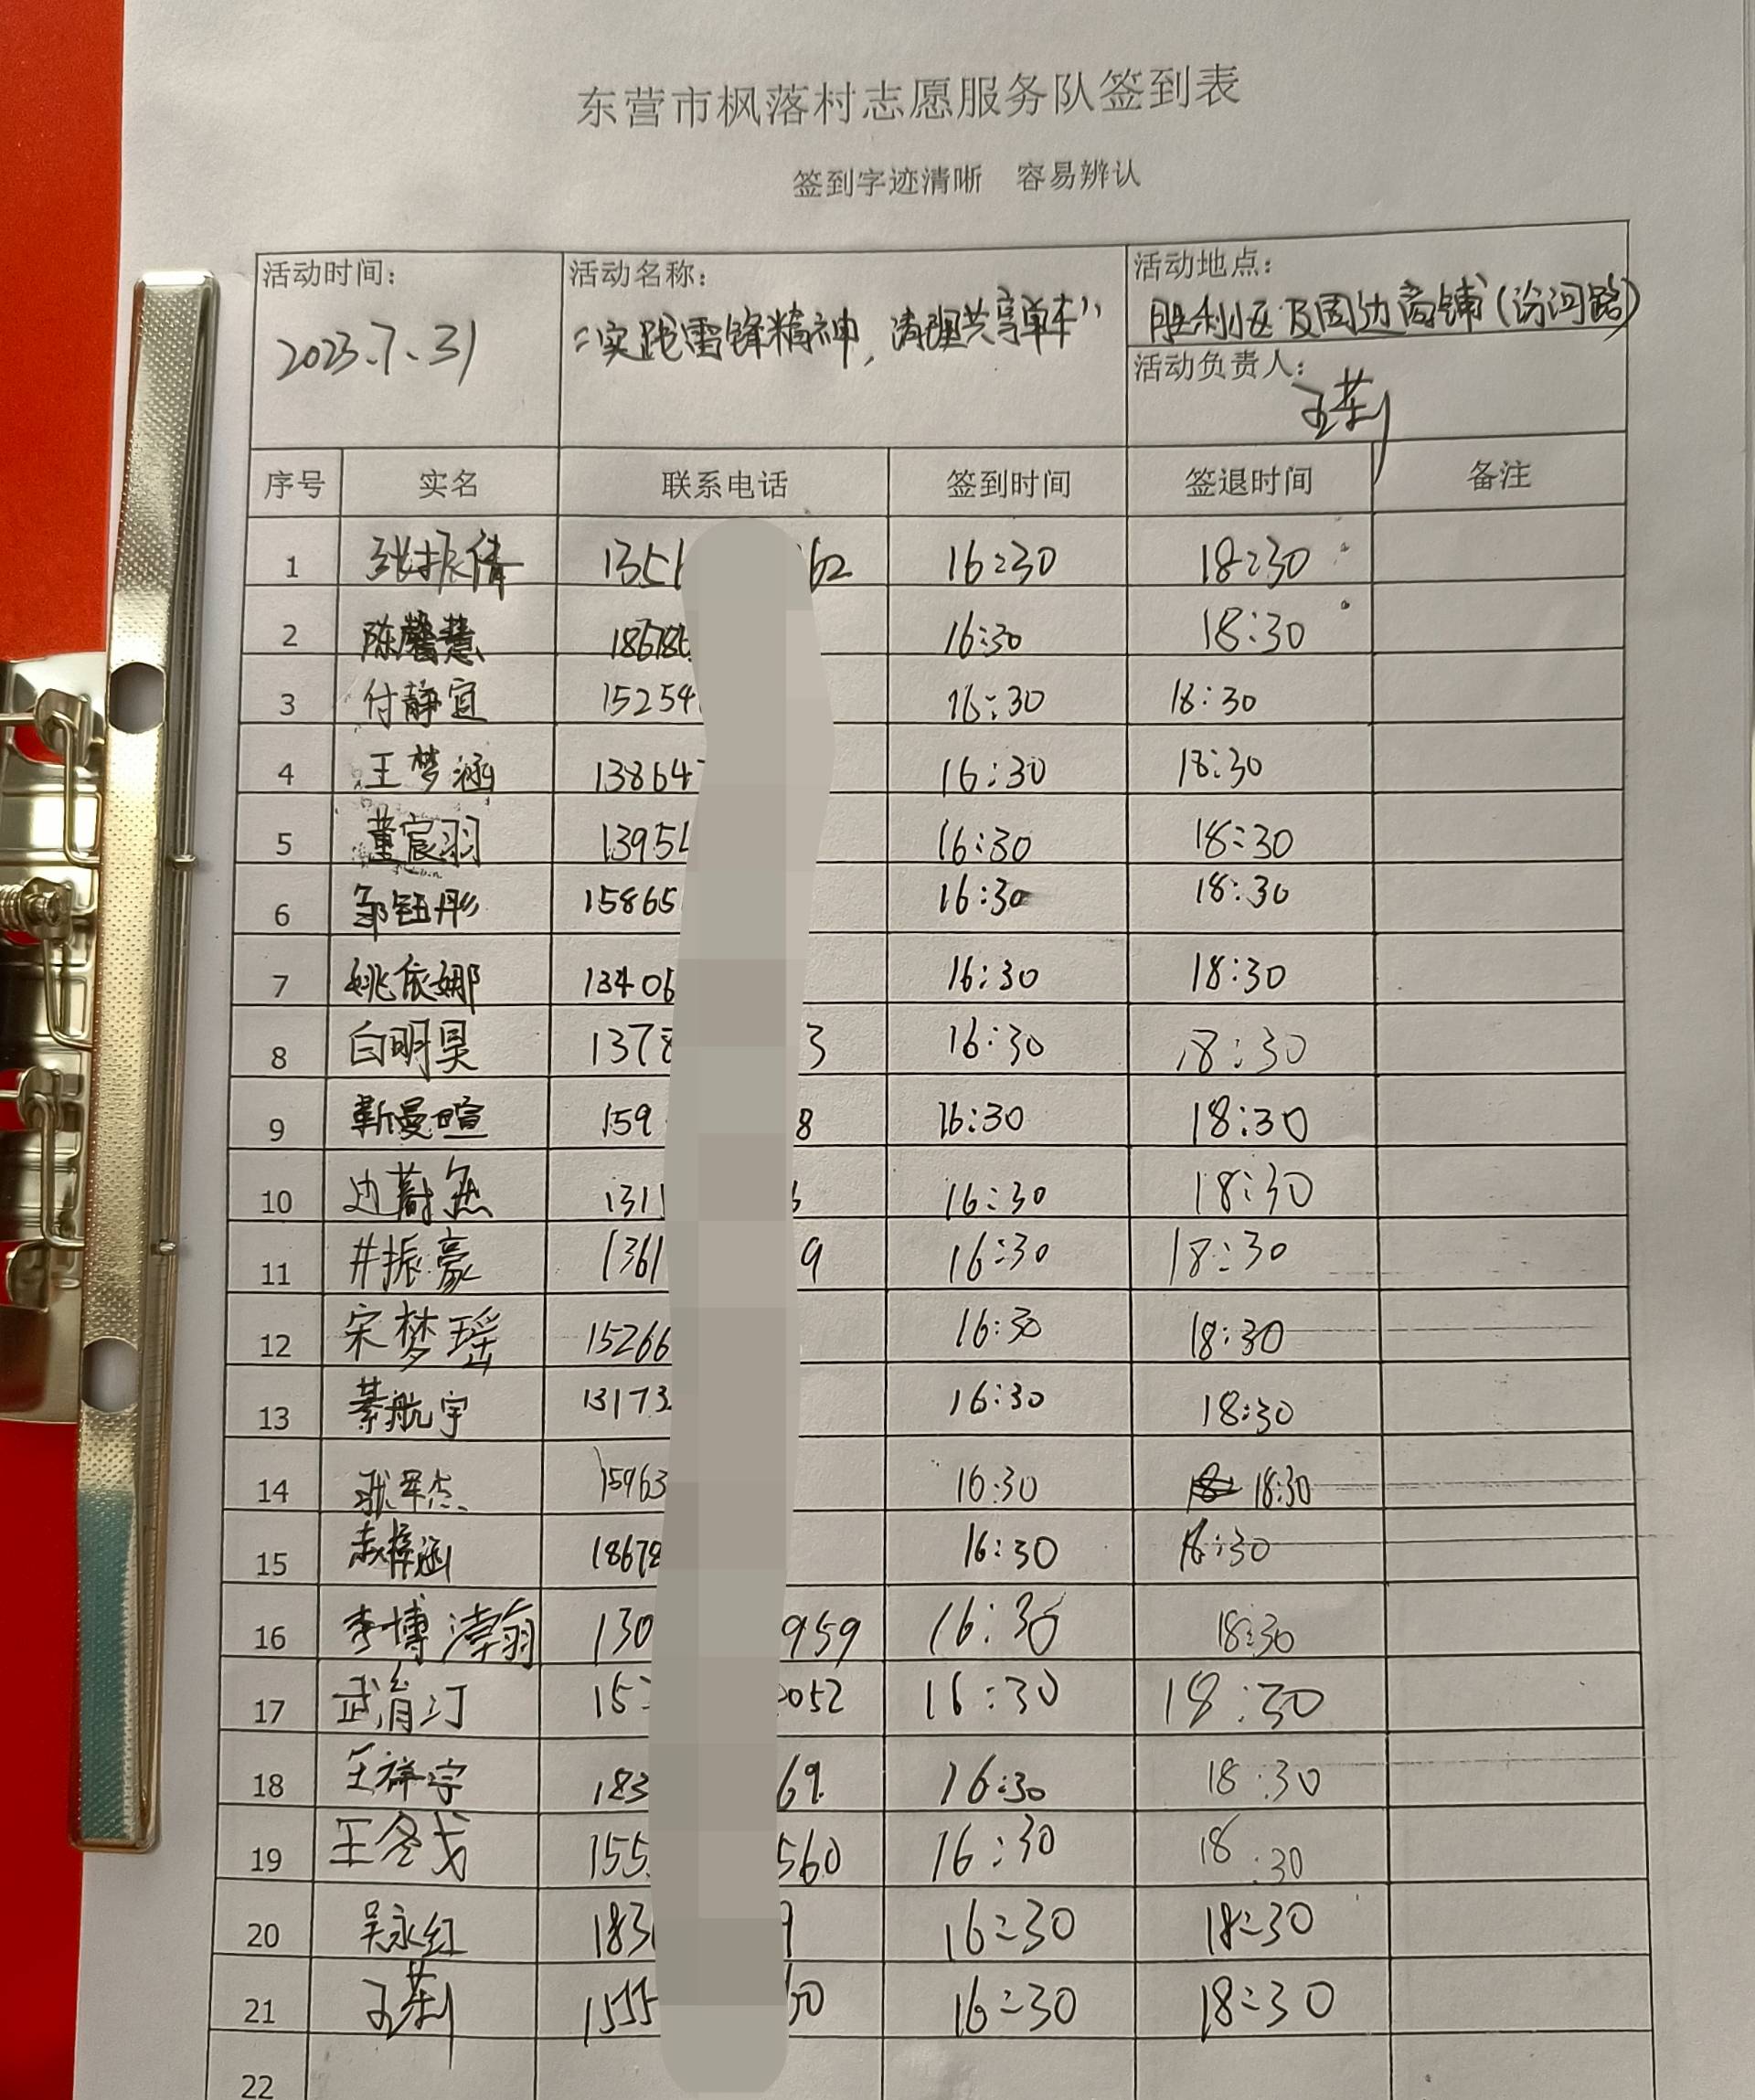 东营市枫落村志愿服务队签到表
签到字迹清晰 容易辨认
活动时间: 活动名称: 活动地点:
2023.7.31 "实践雷锋精神,清理共享单车" 胜利小区及周边商铺(汾河路)
活动负责人:
王莉
序号 实名 联系电话 签到时间 签退时间 备注
1 张振倩 1351 62 16:30 18:30
2 陈馨慧 18678 16:30 18:30
3 付静宜 15254 16:30 18:30
4 王梦涵 13864 16:30 18:30
5 董宸羽 1395 16:30 18:30
6 邹钰彤 15865 16:30 18:30
7 姚依娜 13406 16:30 18:30
8 白明昊 1378 3 16:30 18:30
9 靳曼暄 159 8 16:30 18:30
10 边蔚然 131 16:30 18:30
11 井振豪 1361 9 16:30 18:30
12 宋梦瑶 15266 16:30 18:30
13 綦航宇 13173 16:30 18:30
14 15963 16:30 18:30
15 梓涵 18678 16:30 18:30
16 李博 130 959 16:30 18:30
17 武 汀 15 052 16:30 18:30
18 王祥宇 183 69 16:30 18:30
19 王冬戈 155 560 16:30 18:30
20 吴永红 183 9 16:30 18:30
21 王莉 1555 60 16:30 18:30
22